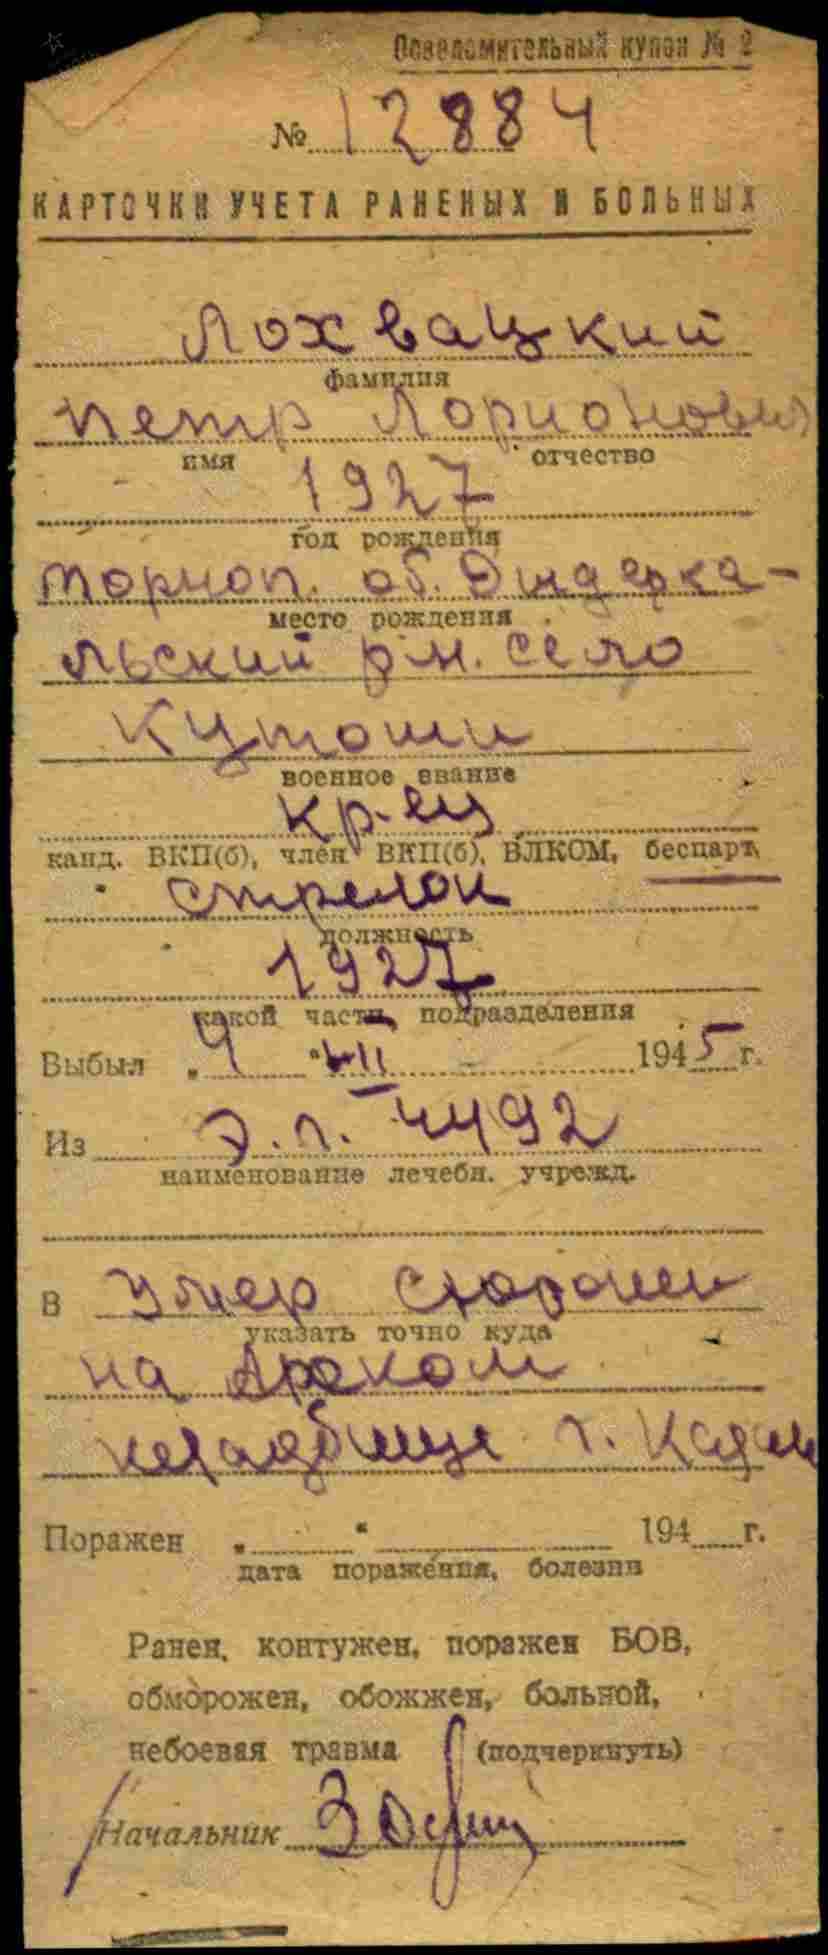 Осведомительный купон № 2
№ 12884
КАРТОЧКИ УЧЕТА РАНЕНЫХ И БОЛЬНЫХ
Лохвацкий
фамилия
Петр Лорионович
имя отчество
1927
год рождения
Торноп. об. Дидерка-
место рождения
льский р-н. село
Кутоши
военное звание
кр-ец
канд. ВКП(б), член ВКП(б), ВЛКОМ, беспарт.
стрелок
должность
1927
какой части, подразделения
Выбыл „4" VII 1945 г.
Из Э.г. 4492
наименование лечебн. учрежд.
В Умер схоронен
указать точно куда
на Арском
кладбище г. Казань
Поражен „ " 194 г.
дата поражения, болезни
Ранен, контужен, поражен БОВ,
обморожен, обожжен, больной,
небоевая травма (подчеркнуть)
Начальник